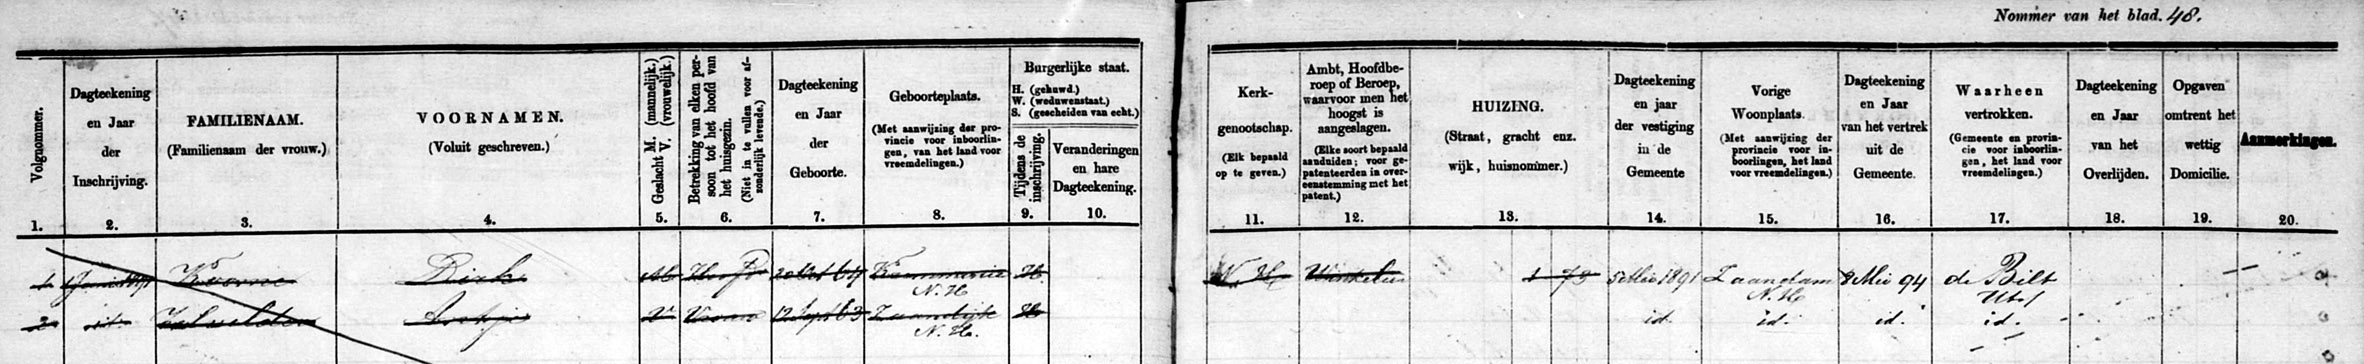 Nommer van het blad. 48.
Volgnommer.
1.
Dagteekening
en Jaar
der
Inschrijving.
2.
FAMILIENAAM.
(Familienaam der vrouw.)
3.
VOORNAMEN.
(Voluit geschreven.)
4.
Geslacht M. (mannelijk.)
V. (vrouwelijk.)
5.
Betrekking van elken per-
soon tot het hoofd van
het huisgezin.
(Niet in te vullen voor af-
zonderlijk levende.)
6.
Dagteekening
en Jaar
der
Geboorte.
7.
Geboorteplaats.
(Met aanwijzing der pro-
vincie voor inboorlin-
gen, van het land voor
vreemdelingen.)
8.
Burgerlijke staat.
H. (gehuwd.)
W. (weduwenstaat.)
S. (gescheiden van echt.)
Tijdens de
inschrijving.
9.
Veranderingen
en hare
Dagteekening.
10.
Kerk-
genootschap.
(Elk bepaald
op te geven.)
11.
Ambt, Hoofdbe-
roep of Beroep,
waarvoor men het
hoogst is
aangeslagen.
(Elke soort bepaald
aanduiden; voor ge-
patenteerden in over-
eenstemming met het
patent.)
12.
HUIZING.
(Straat, gracht enz.
wijk, huisnommer.)
13.
Dagteekening
en jaar
der vestiging
in de
Gemeente
14.
Vorige
Woonplaats.
(Met aanwijzing der
provincie voor in-
boorlingen, het land
voor vreemdelingen.)
15.
Dagteekening
en Jaar
van het vertrek
uit de
Gemeente.
16.
Waarheen
vertrokken.
(Gemeente en provin-
cie voor inboorlin-
gen, het land voor
vreemdelingen.)
17.
Dagteekening
en Jaar
van het
Overlijden.
18.
Opgaven
omtrent het
wettig
Domicilie.
19.
Aanmerkingen.
20.
1 Dirk M Hoofd 20 Oct 64 H N. H 1 73 5 Mei 1891 Zaandam 8 Mei 94 de Bilt
N. H N. H Ut
2 id. Aaltje V Vrouw 12 Sept 63 Zaandijk H id. id. id. id.
N. H.